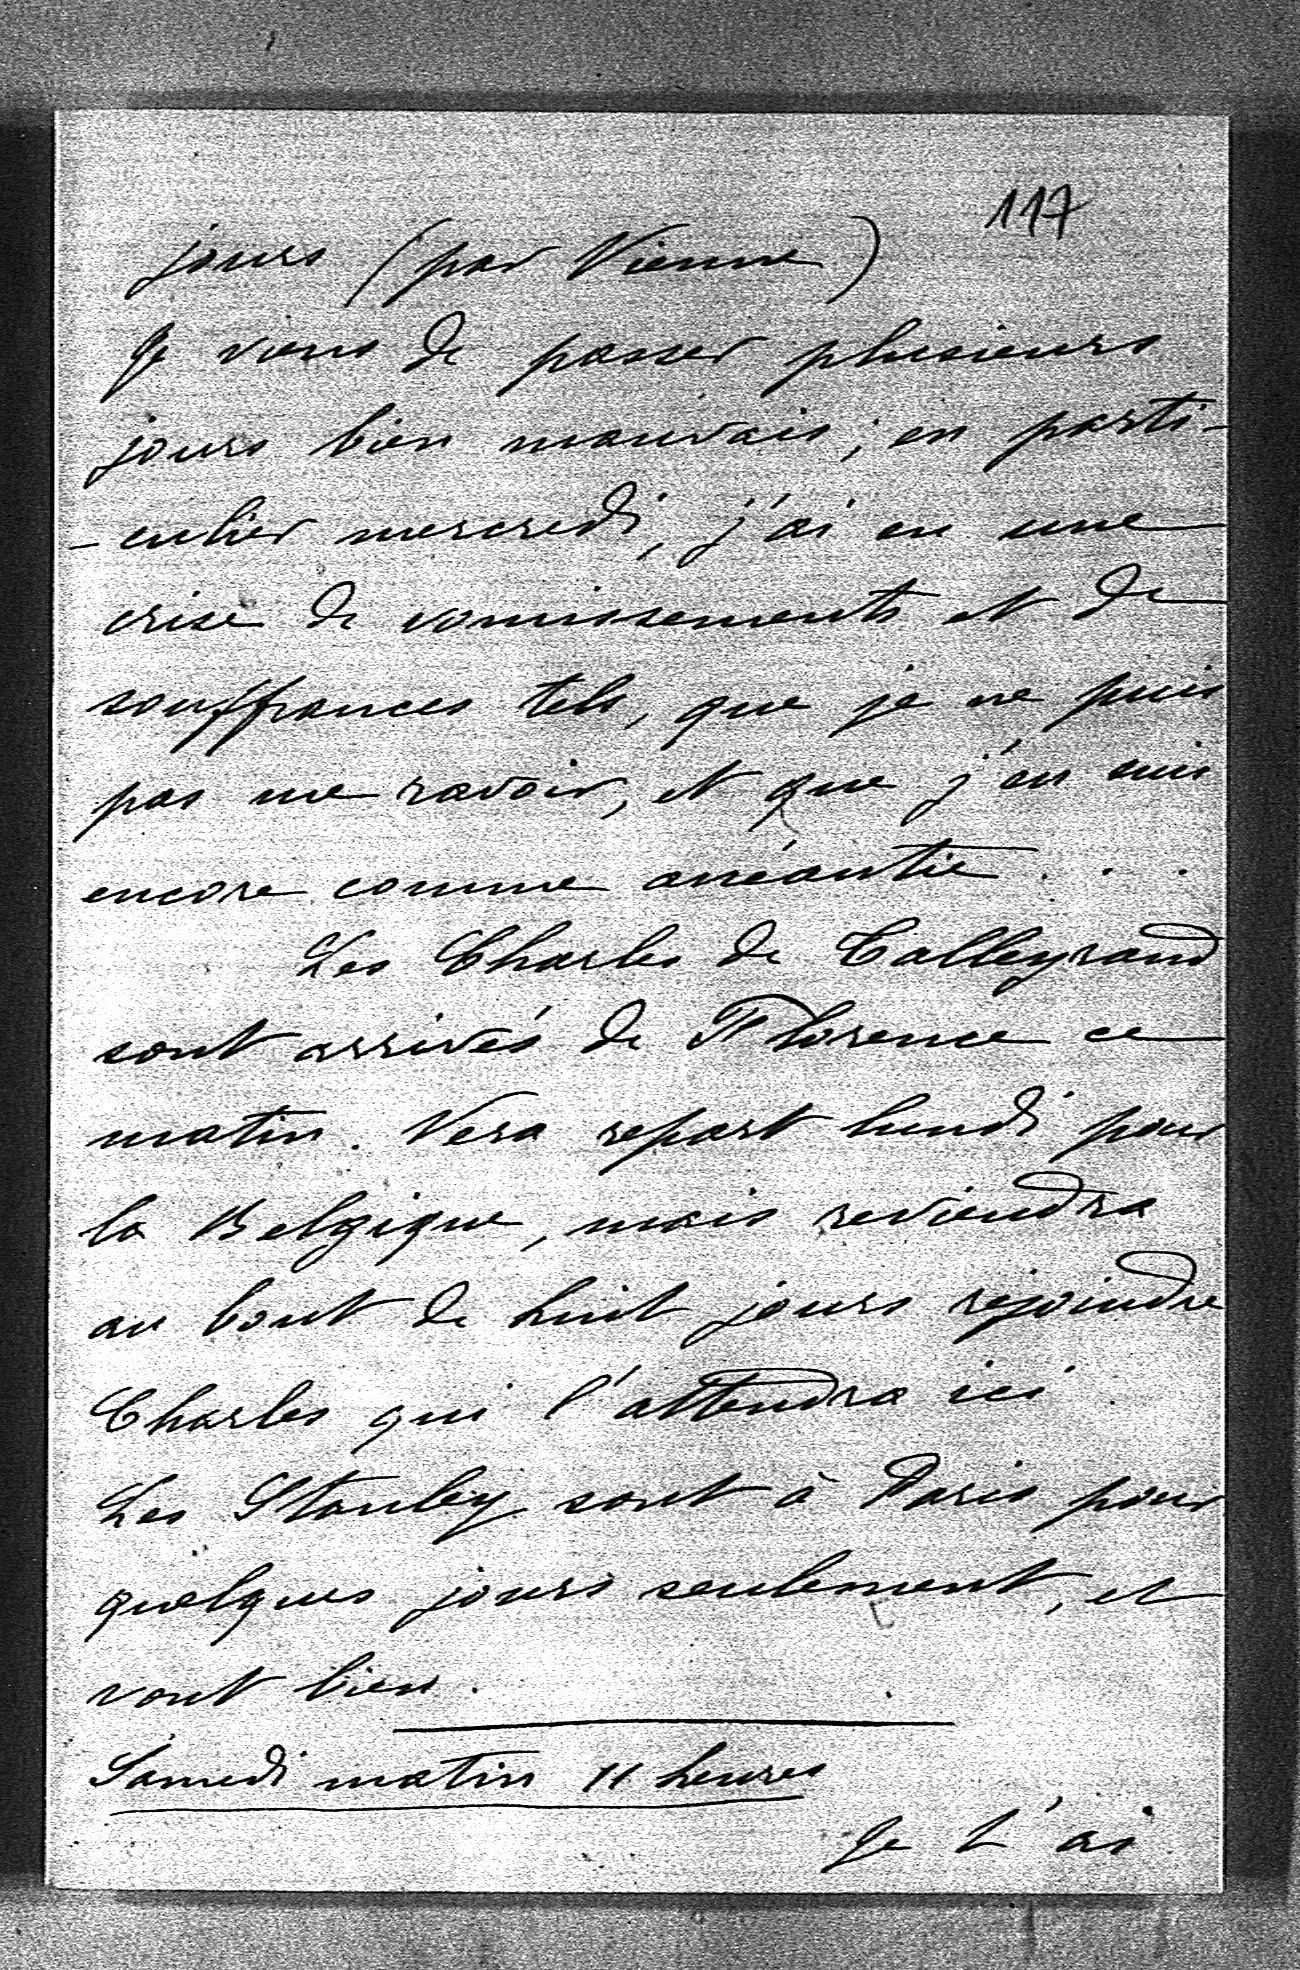 117
jours (par Vienne)
Je viens de passer plusieurs
jours bien mauvais; en parti-
-culier mercredi, j'ai eu une
crise de vomissements et de
souffrances tels, que je ne puis
pas me ravoir, et que j'en suis
encore comme anéantie . . .
Les Charles de Talleyrand
sont arrivés de Florence ce
matin. Vera repart lundi pour
la Belgique, mais reviendra
au bout de huit jours rejoindre
Charles qui l'attendra ici.
Les Stanley sont à Paris pour
quelques jours seulement, et
vont bien.
Samedi matin 11 heures
Je t'ai